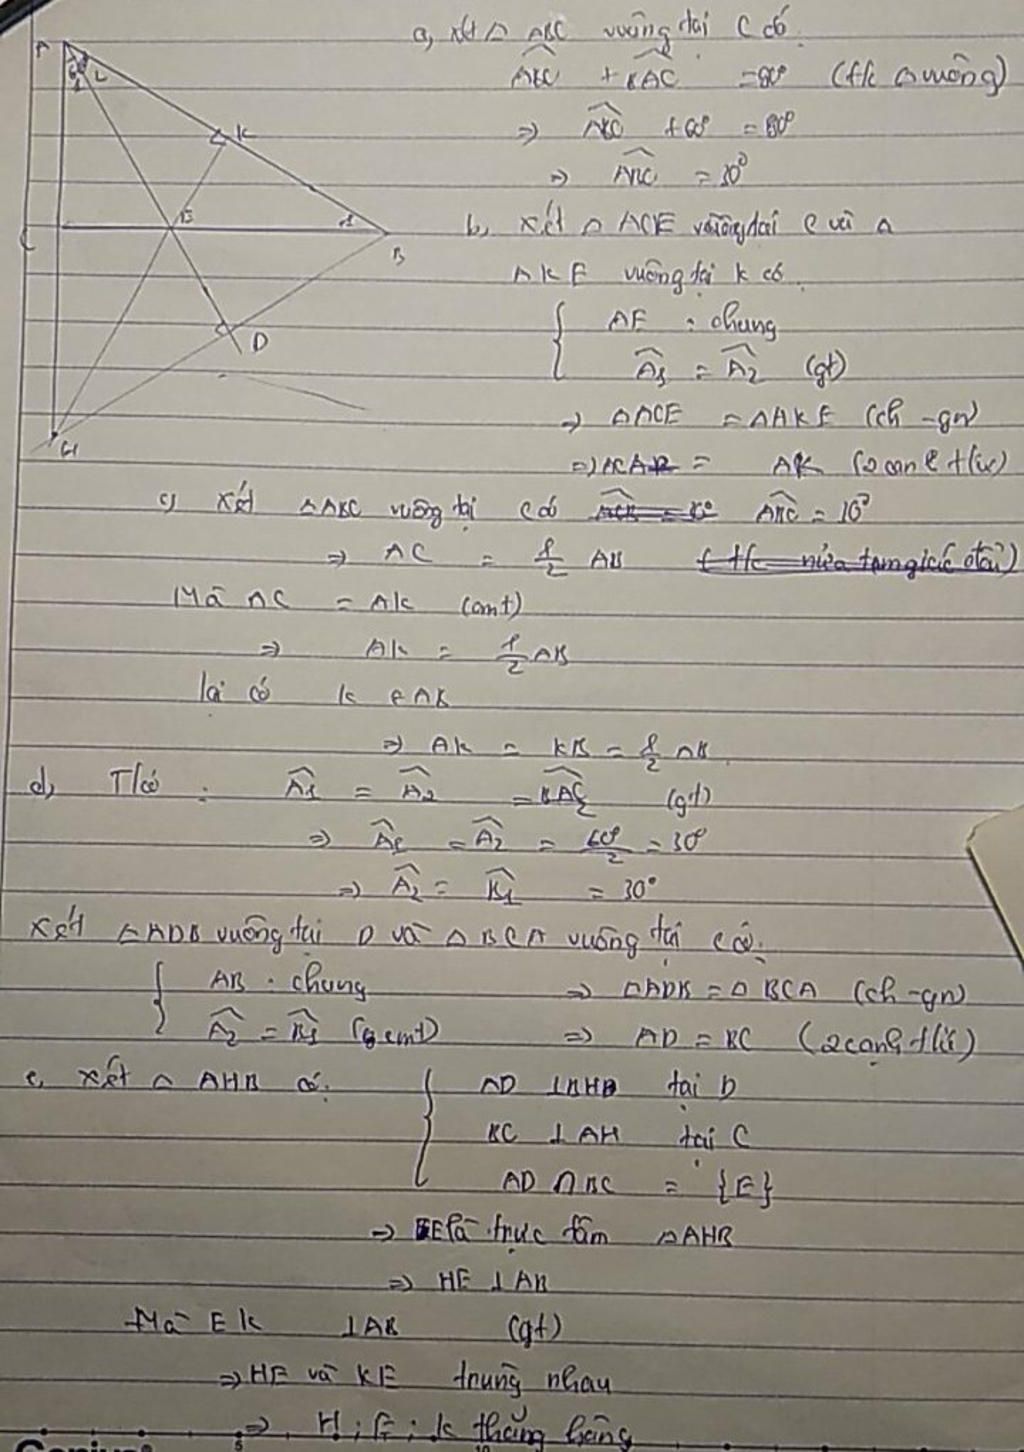 a, xét △ ABC vuông tại C có
ABC + BAC = 90° (t/c △ vuông)
=> ABC + 60° = 90°
=> ABC = 30°
b, xét △ ACE vuông tại C và △
AKE vuông tại K có
AE : chung
A1 = A2 (gt)
=> △ACE = △AKE (ch - gn)
=> AC = AK (2 cạnh t/ứ)
c, xét △ABC vuông tại C có ABC = 30°
=> AC = 1/2 AB (t/c nửa tam giác đều)
Mà AC = AK (cmt)
=> AK = 1/2 AB
lại có K ∈ AB
=> AK = KB = 1/2 AB
d, T/có : A1 = A2 = BAC/2 (gt)
=> A1 = A2 = 60°/2 = 30°
=> A2 = B1 = 30°
xét △ADB vuông tại D và △ BCA vuông tại C có:
AB : chung => △ADB = △ BCA (ch - gn)
A2 = B1 (cmt) => AD = BC (2 cạnh t/ứ)
e, xét △ AHB có:
AD ⊥ HB tại D
BC ⊥ AH tại C
AD ∩ BC = {E}
=> E là trực tâm △AHB
=> HE ⊥ AB
Mà EK ⊥ AB (gt)
=> HE và KE trùng nhau
=> H ; E ; K thẳng hàng
A
1
2
K
E
1
B
C
D
H